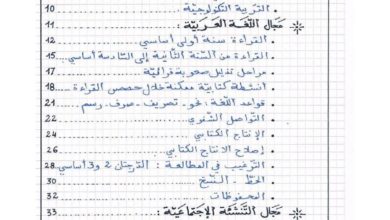 التربية التكنولوجية 10
مجال اللغة العربية : 11
القراءة سنة أولى أساسي 12
القراءة من السنة الثانية إلى السادسة أساسي 15
مراحل تذليل صعوبة قرائية 17
أنشطة كتابية ممكنة خلال حصص القراءة 18
قواعد اللغة : نحو - تصريف - صرف - رسم 21
التواصل الشفوي 22
الإنتاج الكتابي 24
إصلاح الإنتاج الكتابي 26
الترغيب في المطالعة : الدرجتان 2 و 3 أساسي 28
الخط - النسخ 30
المحفوظات 32
مجال التنشئة الاجتماعية : 33